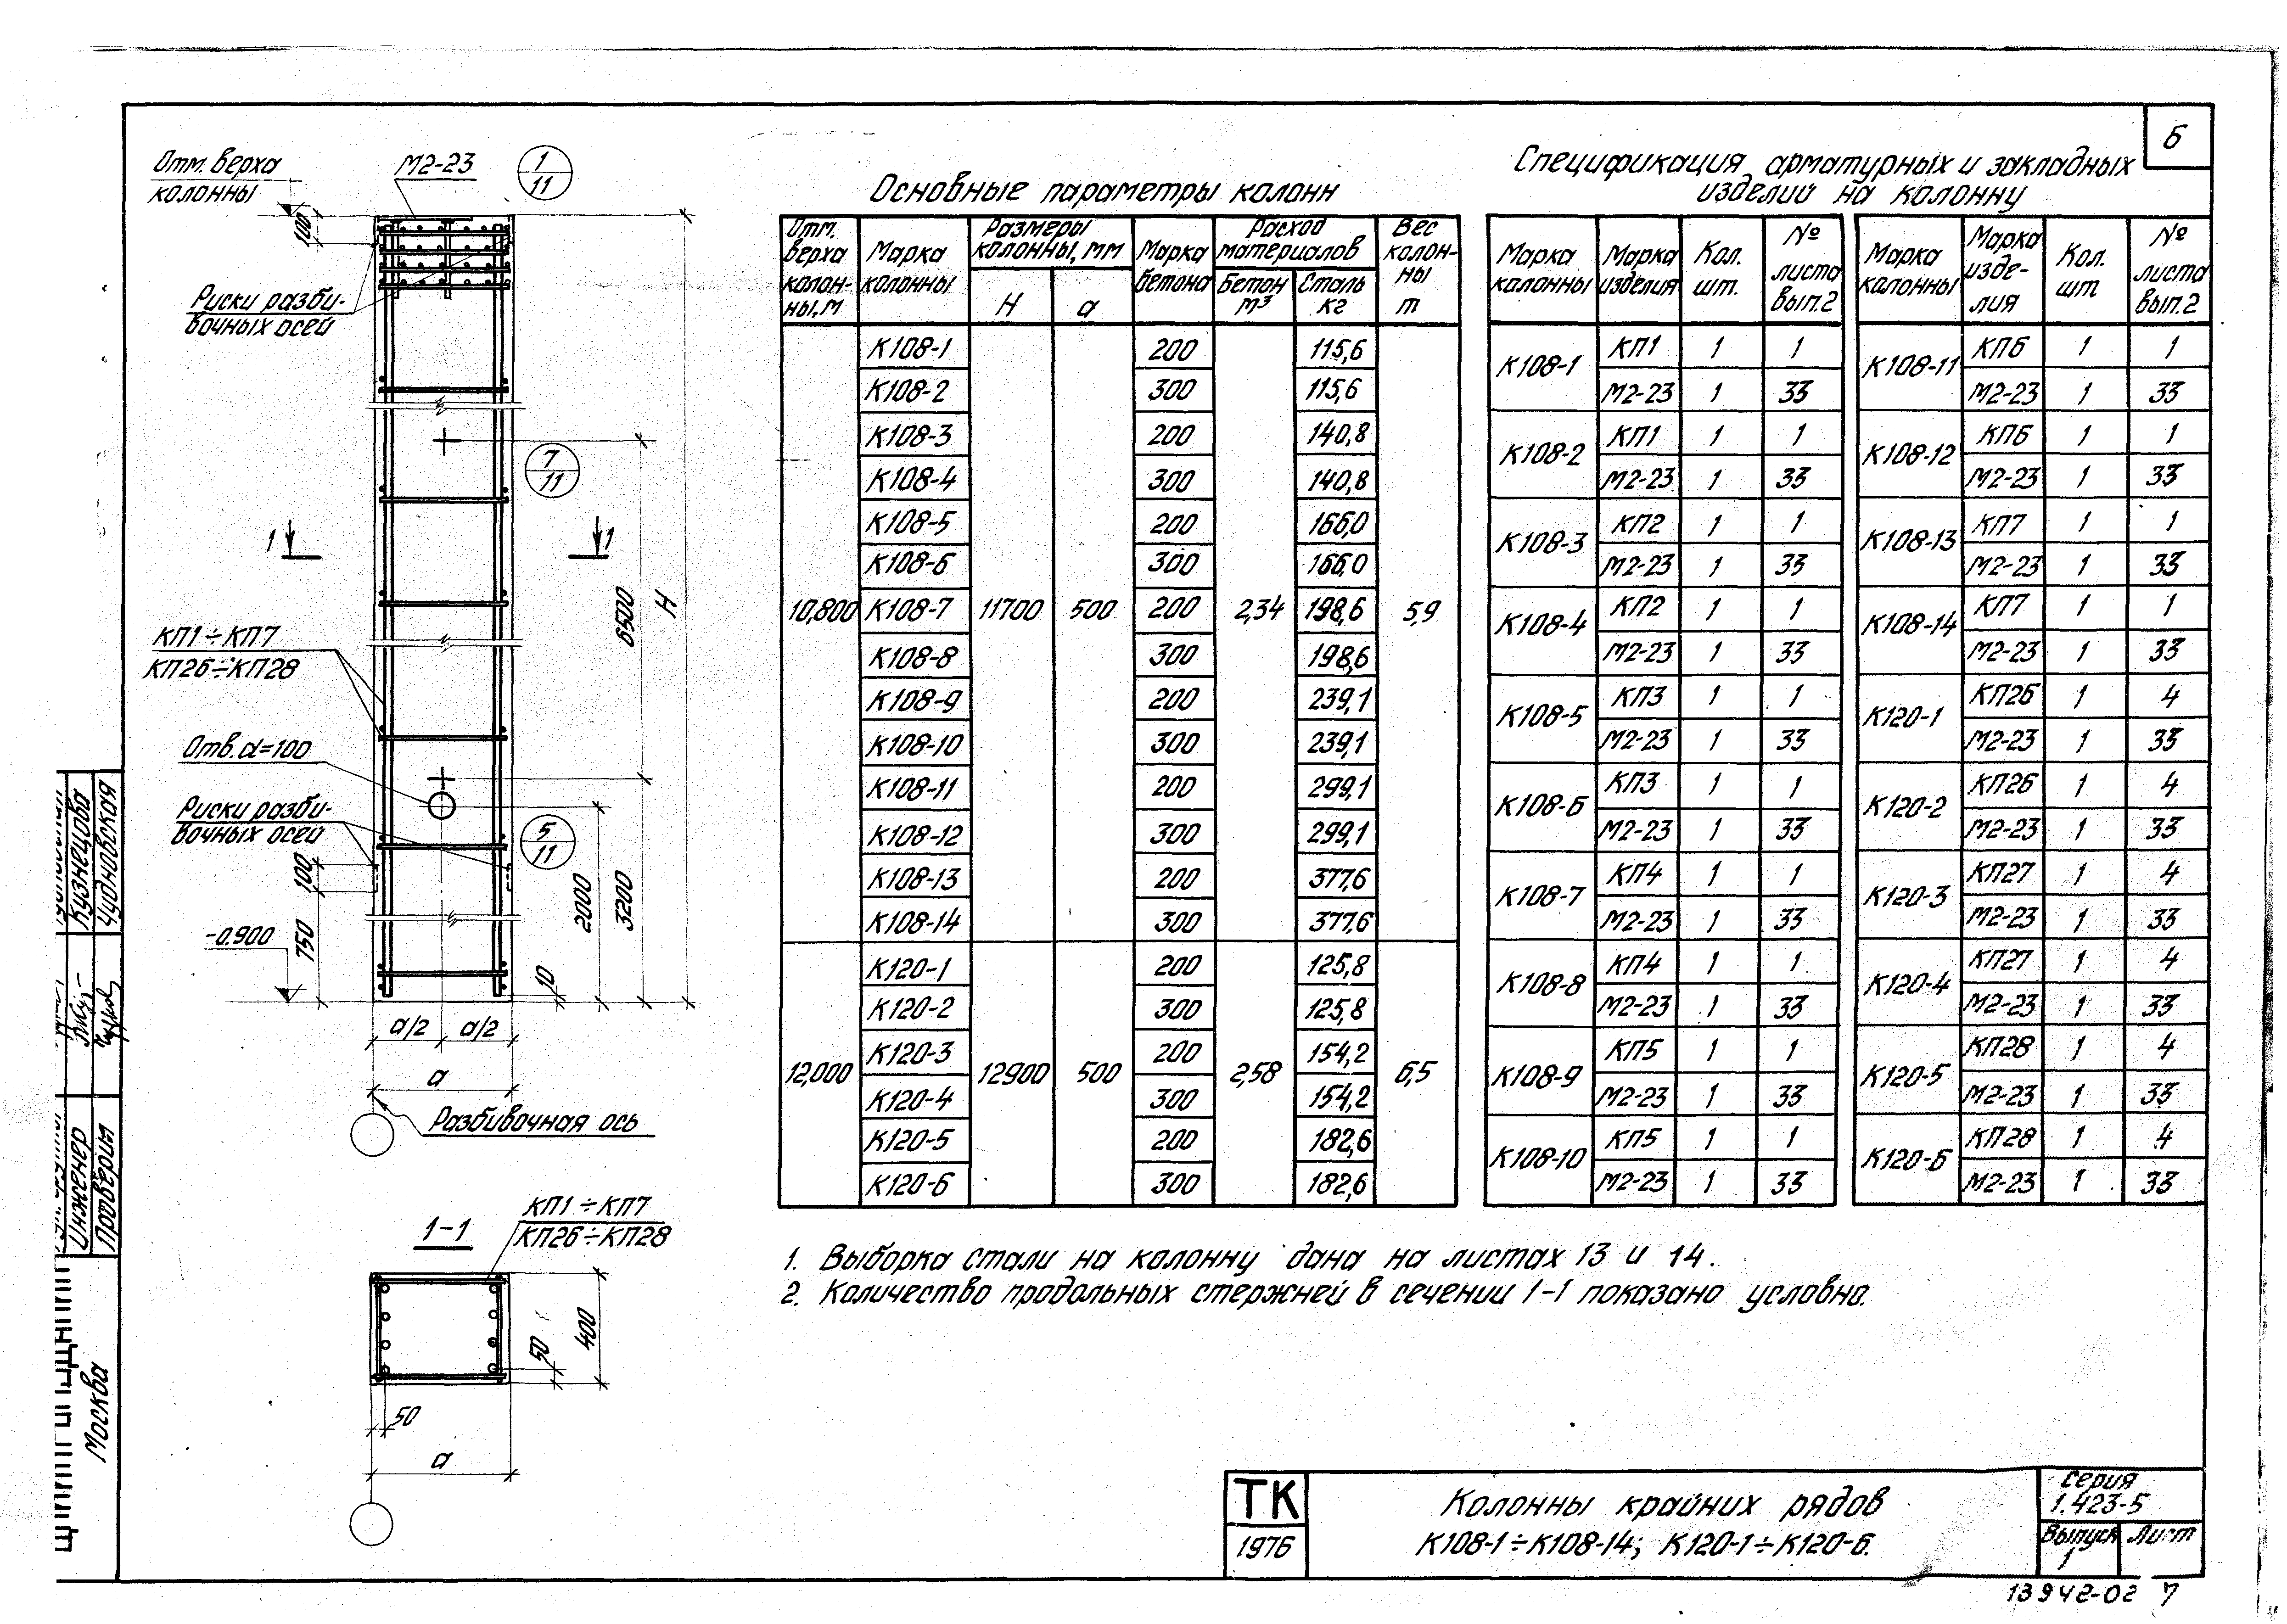 6
Отм. верха
колонны
М2-23
1
11
100
Риски разби-
вочных осей
7
11
1 1
6500
Н
КП1÷КП7
КП26÷КП28
Отв. d=100
Риски разби-
вочных осей
5
11
100
750
2000
3200
-0.900
10
а/2 а/2
а
Разбивочная ось
1-1
КП1÷КП7
КП26÷КП28
50
400
50
а
Основные параметры колонн
Отм. верха колон-ны, м | Марка колонны | Размеры колонны, мм | Марка бетона | Расход материалов | Вес колон-ны т
Н | а | Бетон м³ | Сталь кг
10,800 | 11700 | 500 | 2,34 | 5,9
К108-1 200 115,6
К108-2 300 115,6
К108-3 200 140,8
К108-4 300 140,8
К108-5 200 166,0
К108-6 300 166,0
К108-7 200 198,6
К108-8 300 198,6
К108-9 200 239,1
К108-10 300 239,1
К108-11 200 299,1
К108-12 300 299,1
К108-13 200 377,6
К108-14 300 377,6
12,000 | 12900 | 500 | 2,58 | 6,5
К120-1 200 125,8
К120-2 300 125,8
К120-3 200 154,2
К120-4 300 154,2
К120-5 200 182,6
К120-6 300 182,6
Спецификация арматурных и закладных
изделий на колонну
Марка колонны | Марка изделия | Кол. шт. | № листа вып.2
К108-1 КП1 1 1
М2-23 1 33
К108-2 КП1 1 1
М2-23 1 33
К108-3 КП2 1 1
М2-23 1 33
К108-4 КП2 1 1
М2-23 1 33
К108-5 КП3 1 1
М2-23 1 33
К108-6 КП3 1 1
М2-23 1 33
К108-7 КП4 1 1
М2-23 1 33
К108-8 КП4 1 1
М2-23 1 33
К108-9 КП5 1 1
М2-23 1 33
К108-10 КП5 1 1
М2-23 1 33
Марка колонны | Марка изде-лия | Кол. шт | № листа вып.2
К108-11 КП6 1 1
М2-23 1 33
К108-12 КП6 1 1
М2-23 1 33
К108-13 КП7 1 1
М2-23 1 33
К108-14 КП7 1 1
М2-23 1 33
К120-1 КП26 1 4
М2-23 1 33
К120-2 КП26 1 4
М2-23 1 33
К120-3 КП27 1 4
М2-23 1 33
К120-4 КП27 1 4
М2-23 1 33
К120-5 КП28 1 4
М2-23 1 33
К120-6 КП28 1 4
М2-23 1 33
1. Выборка стали на колонну дана на листах 13 и 14.
2. Количество продольных стержней в сечении 1-1 показано условно.
Кузнецова
Чудновская
Инженер
Проверил
Москва
ТК
1976
Колонны крайних рядов
К108-1÷К108-14; К120-1÷К120-6.
Серия
1.423-5
Выпуск Лист
1
13942-02 7